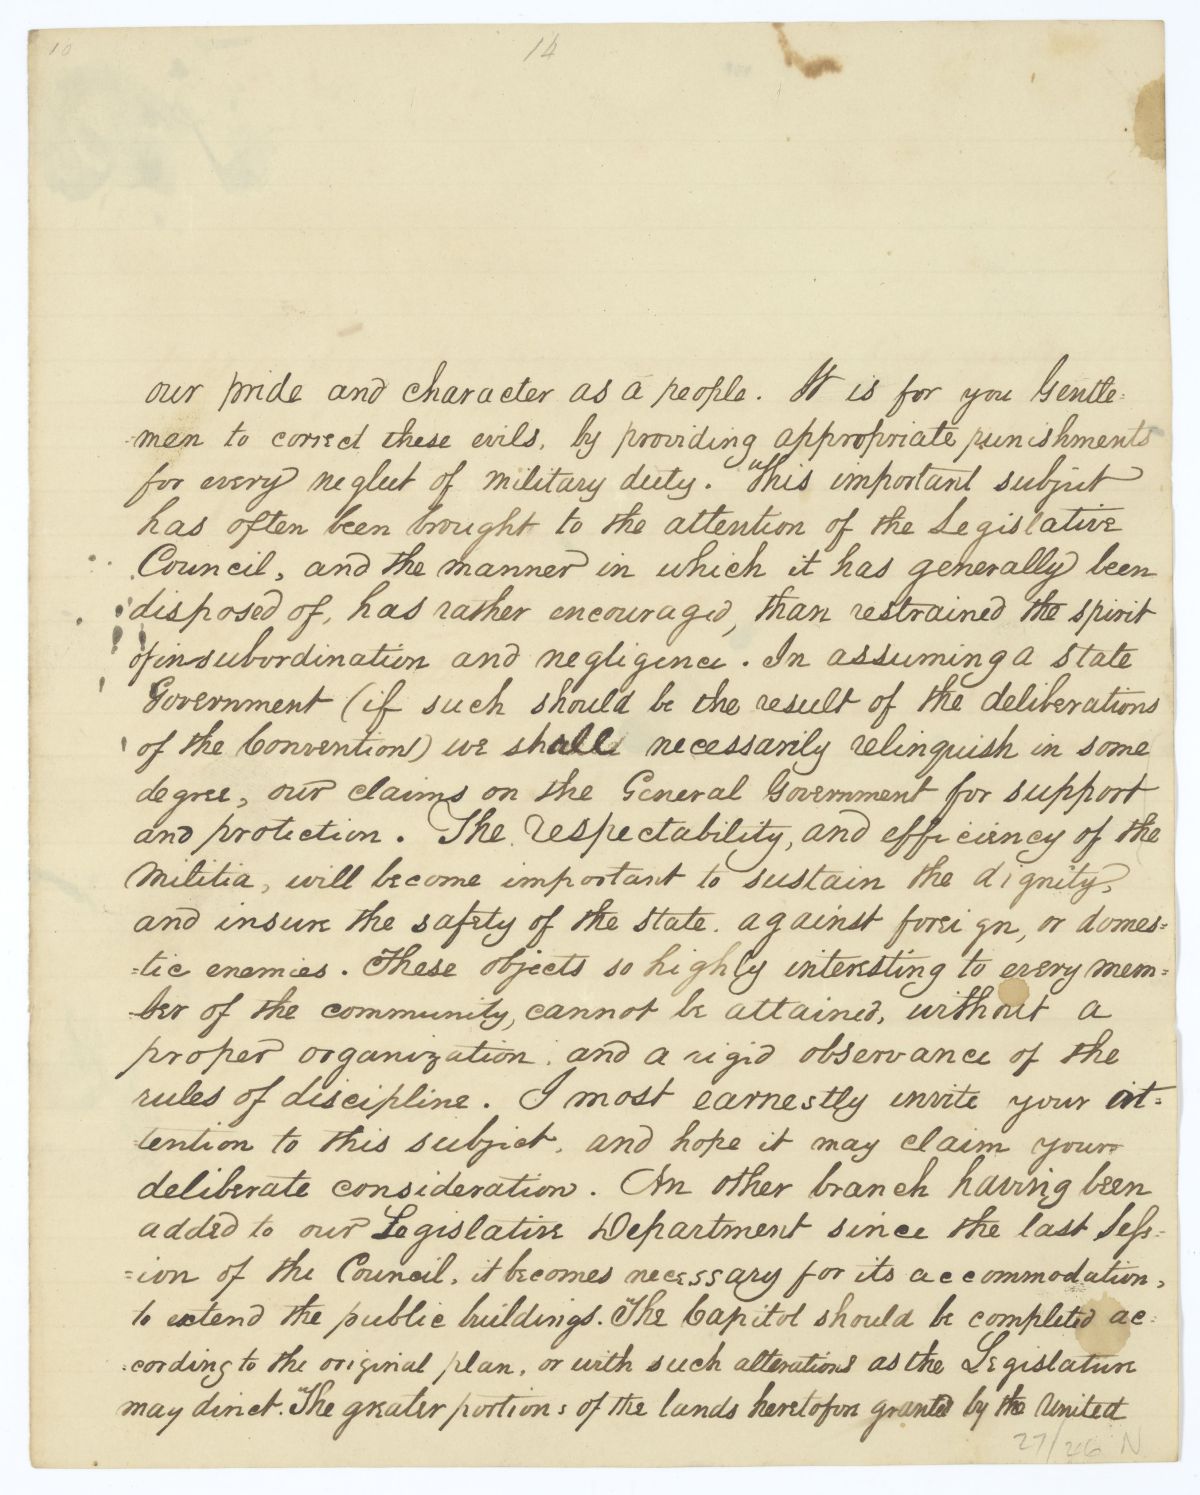 10
14
our pride and character as a people. It is for you Gentle-
-men to correct these evils, by providing appropriate punishments
for every neglect of military duty. This important subject
has often been brought to the attention of the Legislative
Council, and the manner in which it has generally been
disposed of, has rather encouraged, than restrained the spirit
of insubordination and negligence. In assuming a State
Government (if such should be the result of the deliberations
of the Convention) we shall necessarily relinquish in some
degree, our claims on the General Government for support
and protection. The respectability, and efficiency of the
Militia, will become important to sustain the dignity,
and insure the safety of the State against foreign, or domes=
=tic enemies. These objects so highly interesting to every mem=
-ber of the community, cannot be attained, without a
proper organization, and a rigid observance of the
rules of discipline. I most earnestly invite your at=
-tention to this subject, and hope it may claim your
deliberate consideration. An other branch having been
added to our Legislative Department since the last Sess=
=ion of the Council, it becomes necessary for its accommodation,
to extend the public buildings. The Capitol should be completed ac-
-cording to the original plan, or with such alterations as the Legislature
may direct. The greater portions of the lands heretofore granted by the United
27/26 N